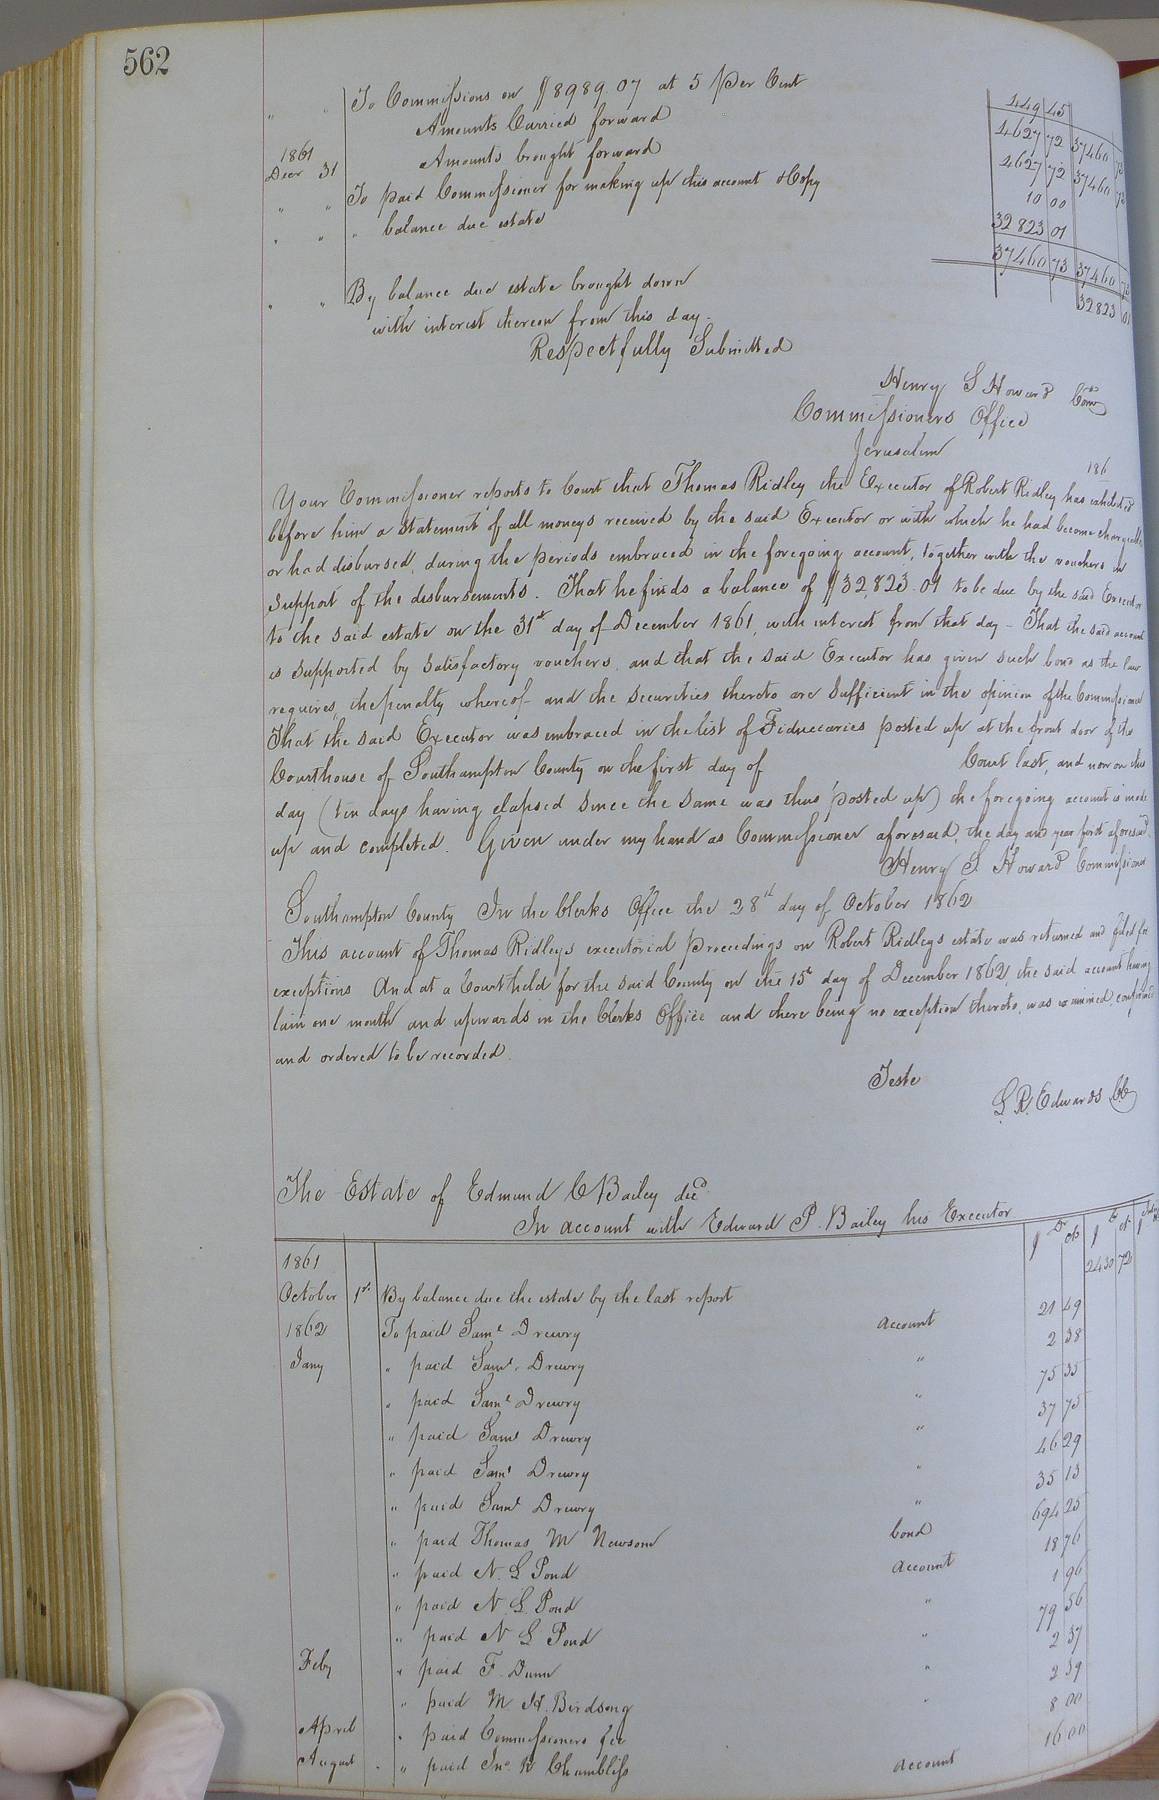 562
" " To Commissions on $8989.07 at 5 Per Cent 449 45
Amounts Carried forward 4627 72 37460 73
1861
Decr 31 Amounts brought forward 4627 72 37460 73
" " To paid Commissioner for making up this account & Copy 10 00
" " " balance due estate 32823 01
37460 73 37460 73
" " By balance due estate brought down 32823 01
with interest thereon from this day.
Respectfully Submitted
Henry S Howard Comr
Commissioners Office
Jerusalem
186
Your Commissioner reports to Court that Thomas Ridley the Executor of Robert Ridley has exhibited
before him a statement of all moneys received by the said Executor or with which he had become chargeable
or had disbursed, during the periods embraced in the foregoing account, together with the vouchers in
support of the disbursements. That he finds a balance of $32,823.01 to be due by the said Executor
to the said estate on the 31st day of December 1861, with interest from that day - That the said account
is supported by satisfactory vouchers, and that the said Executor has given such bond as the law
requires, the penalty whereof and the securities thereto are sufficient in the opinion of the Commissioner
That the said Executor was embraced in the list of Fiduciaries posted up at the front door of the
Courthouse of Southampton County on the first day of Court last, and now on this
day (ten days having elapsed since the same was thus posted up) the foregoing account is made
up and completed. Given under my hand as Commissioner aforesaid, the day and year first aforesaid.
Henry S. Howard Commissioner
Southampton County In the Clerks Office the 28th day of October 1862
This account of Thomas Ridleys executorial proceedings on Robert Ridleys estate was returned and filed for
exceptions And at a Court held for the said County on the 15th day of December 1862, the said account having
lain one month and upwards in the Clerks Office and there being no exception thereto, was examined, confirmed
and ordered to be recorded.
Teste
L. R. Edwards CC
The Estate of Edmund C Bailey decd
In account with Edward P. Bailey his Executor
$ Dr cts $ Cr ct $
1861
October 1st By balance due the estate by the last report 2430 72
1862 To paid Saml Drewry account 21 49
Jany " paid Saml Drewry " 2 38
" paid Saml Drewry " 75 35
" paid Saml Drewry " 37 75
" paid Saml Drewry " 46 29
" paid Saml Drewry " 35 13
" paid Thomas M Newsom bond 694 25
" paid N. L Pond account 18 76
" paid N. L. Pond " 1 96
" paid N L Pond " 79 56
Feby " paid F. Dunn " 2 37
" paid M. H. Birdsong " 2 39
April " paid Commissioners fee 8 00
August " " paid Jno R Chambliss account 16 00